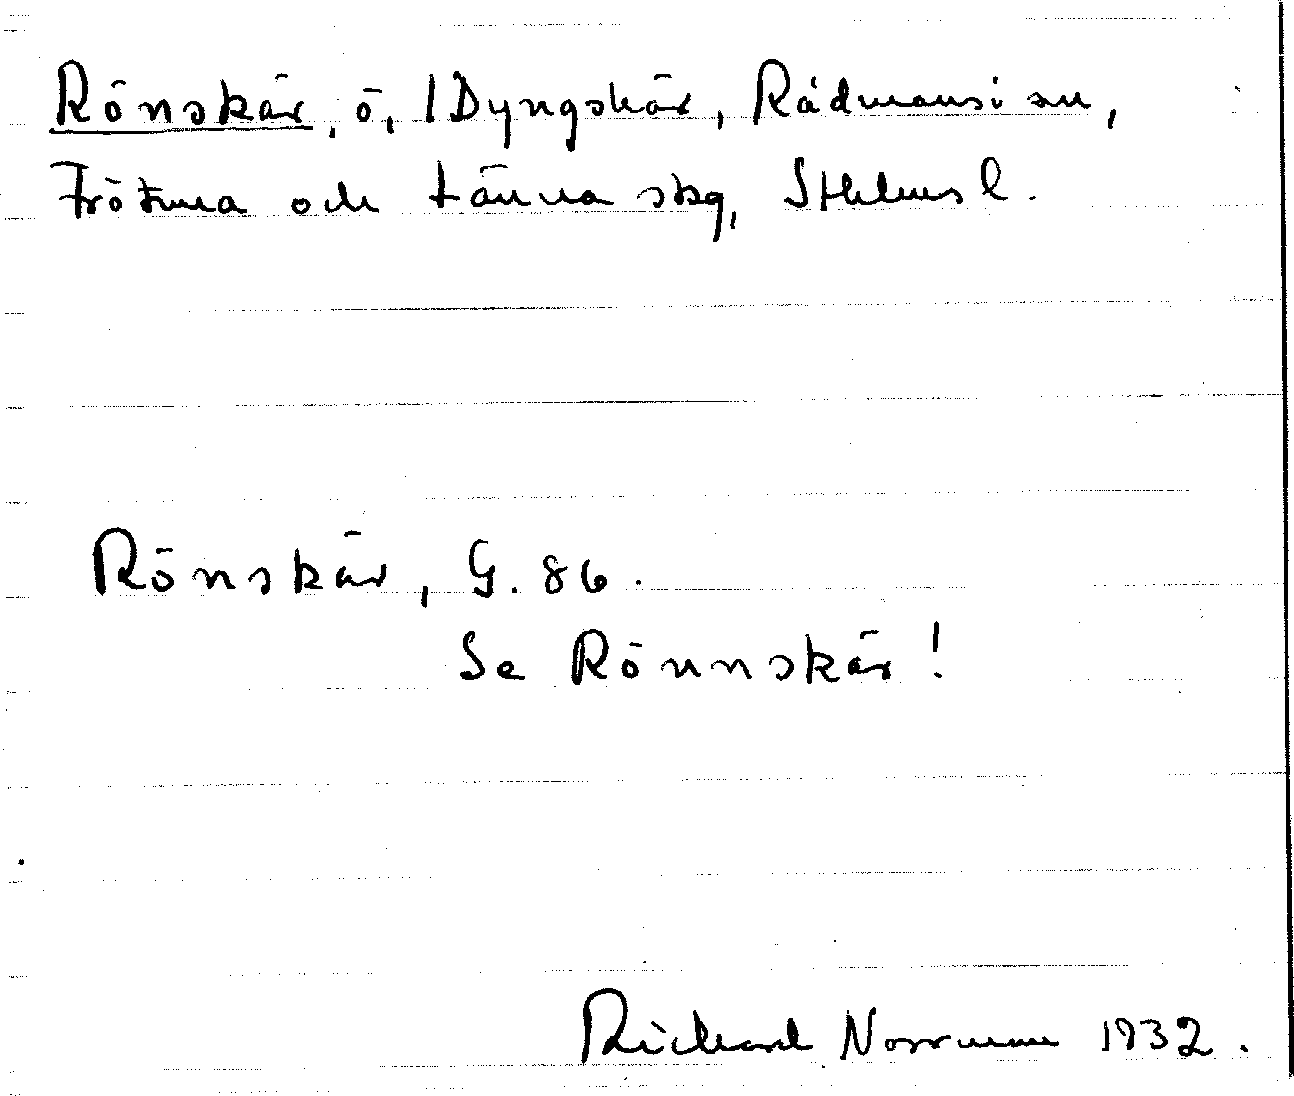 Rönskär, ö, 1 Dyngskär, Rådmansö sn,
Frötuna och Länna skg, Sthlms l.
Rönskär, G. 86.
Se Rönnskär!
Richard Norrman 1932.